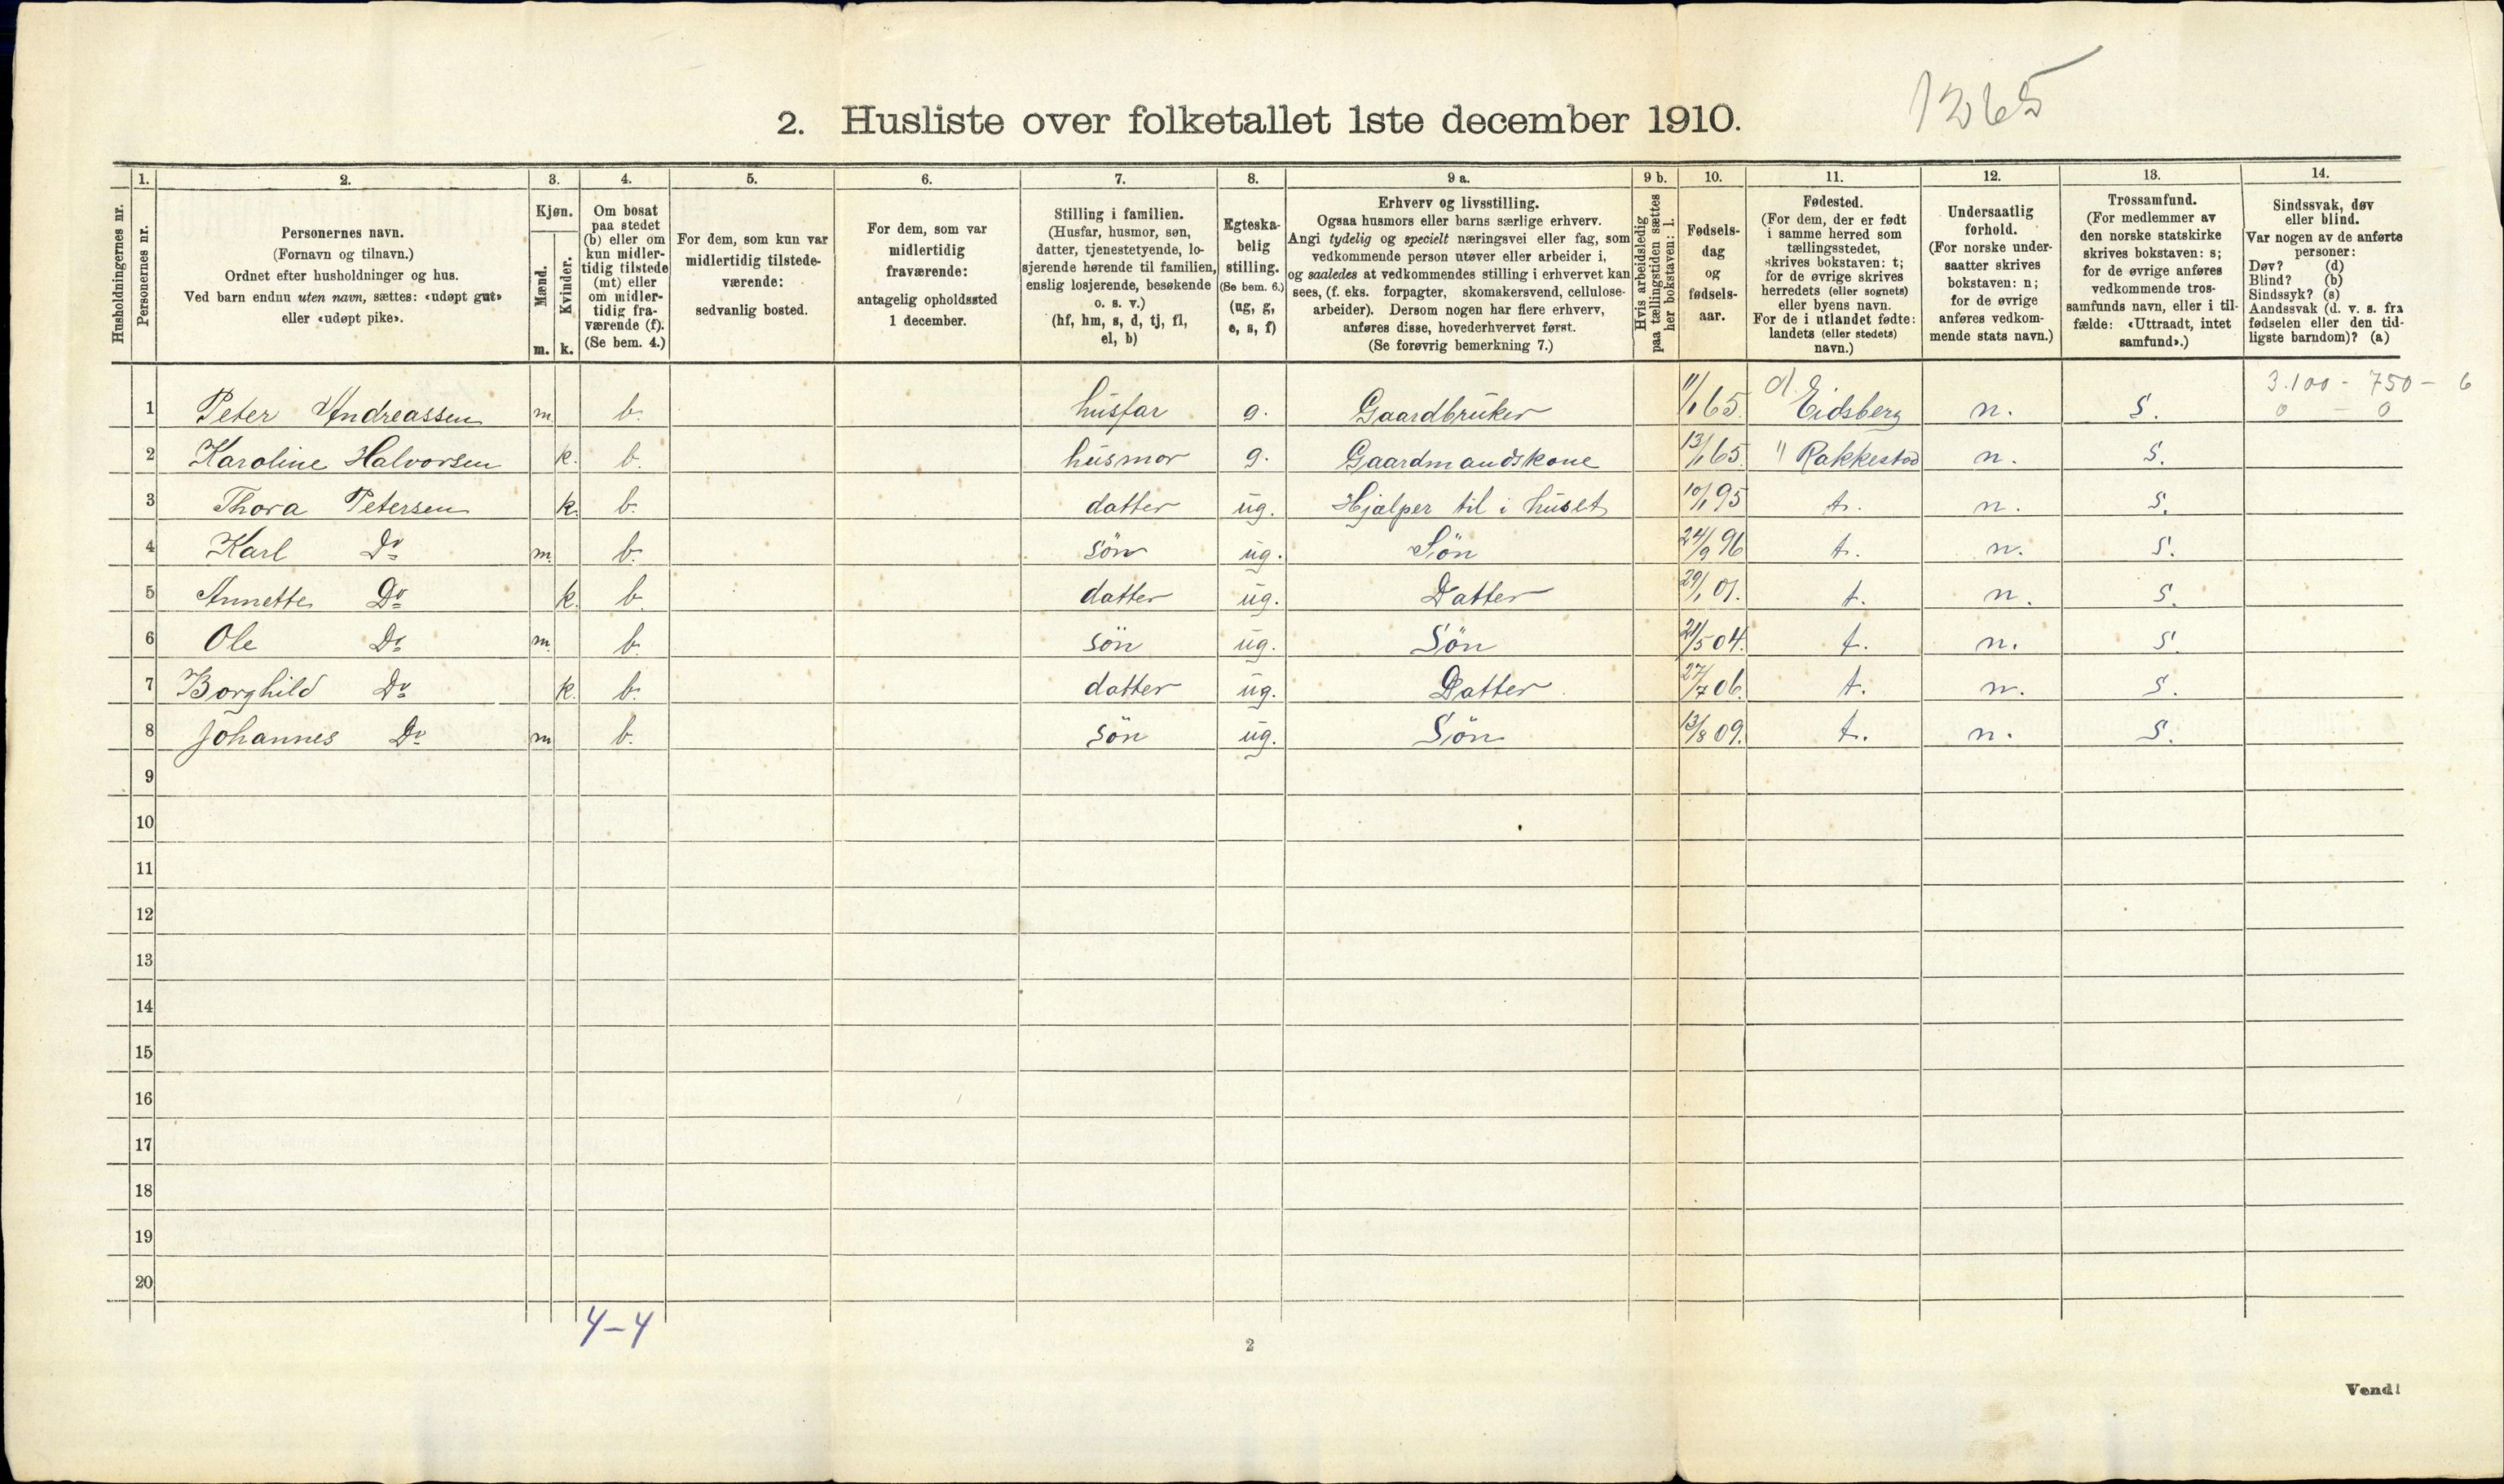 1265
2. Husliste over folketallet 1ste december 1910.
Husholdningernes nr.
1.
Personernes nr.
2.
Personernes navn.
(Fornavn og tilnavn.)
Ordnet efter husholdninger og hus.
Ved barn endnu uten navn, sættes: «udøpt gut»
eller «udøpt pike».
3.
Kjøn.
Mænd.
Kvinder.
m. k.
4.
Om bosat
paa stedet
(b) eller om
kun midler-
tidig tilstede
(mt) eller
om midler-
tidig fra-
værende (f).
(Se bem. 4.)
5.
For dem, som kun var
midlertidig tilstede-
værende:
sedvanlig bosted.
6.
For dem, som var
midlertidig
fraværende:
antagelig opholdssted
1 december.
7.
Stilling i familien.
(Husfar, husmor, søn,
datter, tjenestetyende, lo-
sjerende hørende til familien,
enslig losjerende, besøkende
o. s. v.)
(hf, hm, s, d, tj, fl,
el, b)
8.
Egteska-
belig
stilling.
(Se bem. 6.)
(ug, g,
e, s, f)
9 a.
Erhverv og livsstilling.
Ogsaa husmors eller barns særlige erhverv.
Angi tydelig og specielt næringsvei eller fag, som
vedkommende person utøver eller arbeider i,
og saaledes at vedkommendes stilling i erhvervet kan
sees, (f. eks. forpagter, skomakersvend, cellulose-
arbeider). Dersom nogen har flere erhverv,
anføres disse, hovederhvervet først.
(Se forøvrig bemerkning 7.)
9 b.
Hvis arbeidsledig
paa tællingstiden sættes
her bokstaven: l.
10.
Fødsels-
dag
og
fødsels-
aar.
11.
Fødested.
(For dem, der er født
i samme herred som
tællingsstedet,
skrives bokstaven: t;
for de øvrige skrives
herredets (eller sognets)
eller byens navn.
For de i utlandet fødte:
landets (eller stedets)
navn.)
12.
Undersaatlig
forhold.
(For norske under-
saatter skrives
bokstaven: n;
for de øvrige
anføres vedkom-
mende stats navn.)
13.
Trossamfund.
(For medlemmer av
den norske statskirke
skrives bokstaven: s;
for de øvrige anføres
vedkommende tros-
samfunds navn, eller i til-
fælde: «Uttraadt, intet
samfund».)
14.
Sindssvak, døv
eller blind.
Var nogen av de anførte
personer:
Døv? (d)
Blind? (b)
Sindssyk? (s)
Aandssvak (d. v. s. fra
fødselen eller den tid-
ligste barndom)? (a)
3.100 - 750 - 6
0 - 0
1 Peter Andreassen m b. husfar g. Gaardbruker 11/1 65. Eidsberg n. S.
2 Karoline Halvorsen k. b. husmor g. Gaardmandskone 13/1 65. " Rakkestad n. S.
3 Thora Petersen k. b. datter ug. Hjælper til i huset 10/1 95 t. n. S.
4 Karl Do m. b. søn ug. Søn 24/9 96 t. n. S.
5 Annette Do k. b. datter ug. Datter 29/1 01. t. n. S.
6 Ole Do m. b. søn ug. Søn 21/5 04. t. n. S.
7 Borghild Do k. b. datter ug. Datter 27/7 06. t. n. S.
8 Johannes Do m b. søn ug. Søn 13/8 09. t. n. S.
9
10
11
12
13
14
15
16
17
18
19
20
4-4
2
Vend!